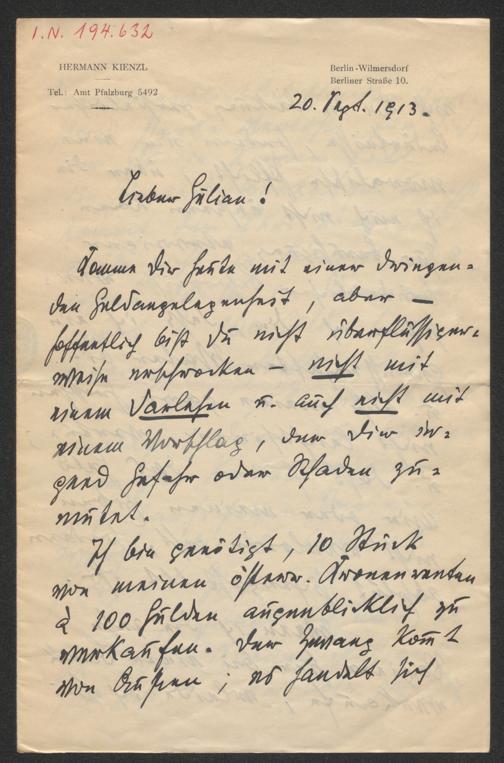 I.N. 194.632
HERMANN KIENZL
Berlin-Wilmersdorf
Berliner Straße 10.
Tel.: Amt Pfalzburg 5492
20. Sept. 1913.
Lieber Julian!
Komme Dir heute mit einer dringen-
den Geldangelegenheit, aber —
hoffentlich bist Du nicht überflüssiger-
weise erschrocken — nicht mit
einem Darlehen u. auch nicht mit
einem Vorschlag, der Dir ir-
gend Gefahr oder Schaden zu-
mutet.
Ich bin genötigt, 10 Stück
von meinen österr. Kronenrenten
à 100 Gulden augenblicklich zu
verkaufen. Der Zwang kommt
von Außen; es handelt sich